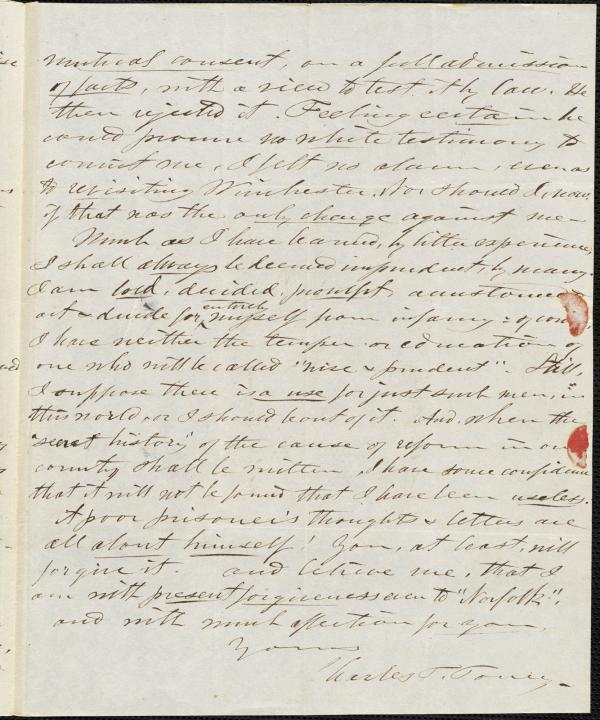 mutual consent, on a full admission
of facts, with a view to test it by law. He
then rejected it. Feeling certain he
could procure no white testimony to
convict me, I felt no alarm, even as
to revisiting Winchester. Nor should I, now,
if that was the only charge against me—
Much as I have learned, by bitter experience,
I shall always be deemed imprudent, by many.
I am bold, decided, prompt, accustomed to
act & decide for entirely myself from infancy: & of course,
I have neither the temper or education of
one who will be called "wise & prudent". Still,
I suppose there is a use for just such men, in
this world, or I should be out of it. And when the
"secret history" of the cause of reform in our
country shall be written, I have some confidence
that it will not be found that I have been useless.
A poor prisoner's thoughts & letters are
all about himself! You, at least, will
forgive it. and believe me, that I
am with present forgiveness even to "Norfolk".
and with much affection for you,
Yours
Charles T. Torrey—